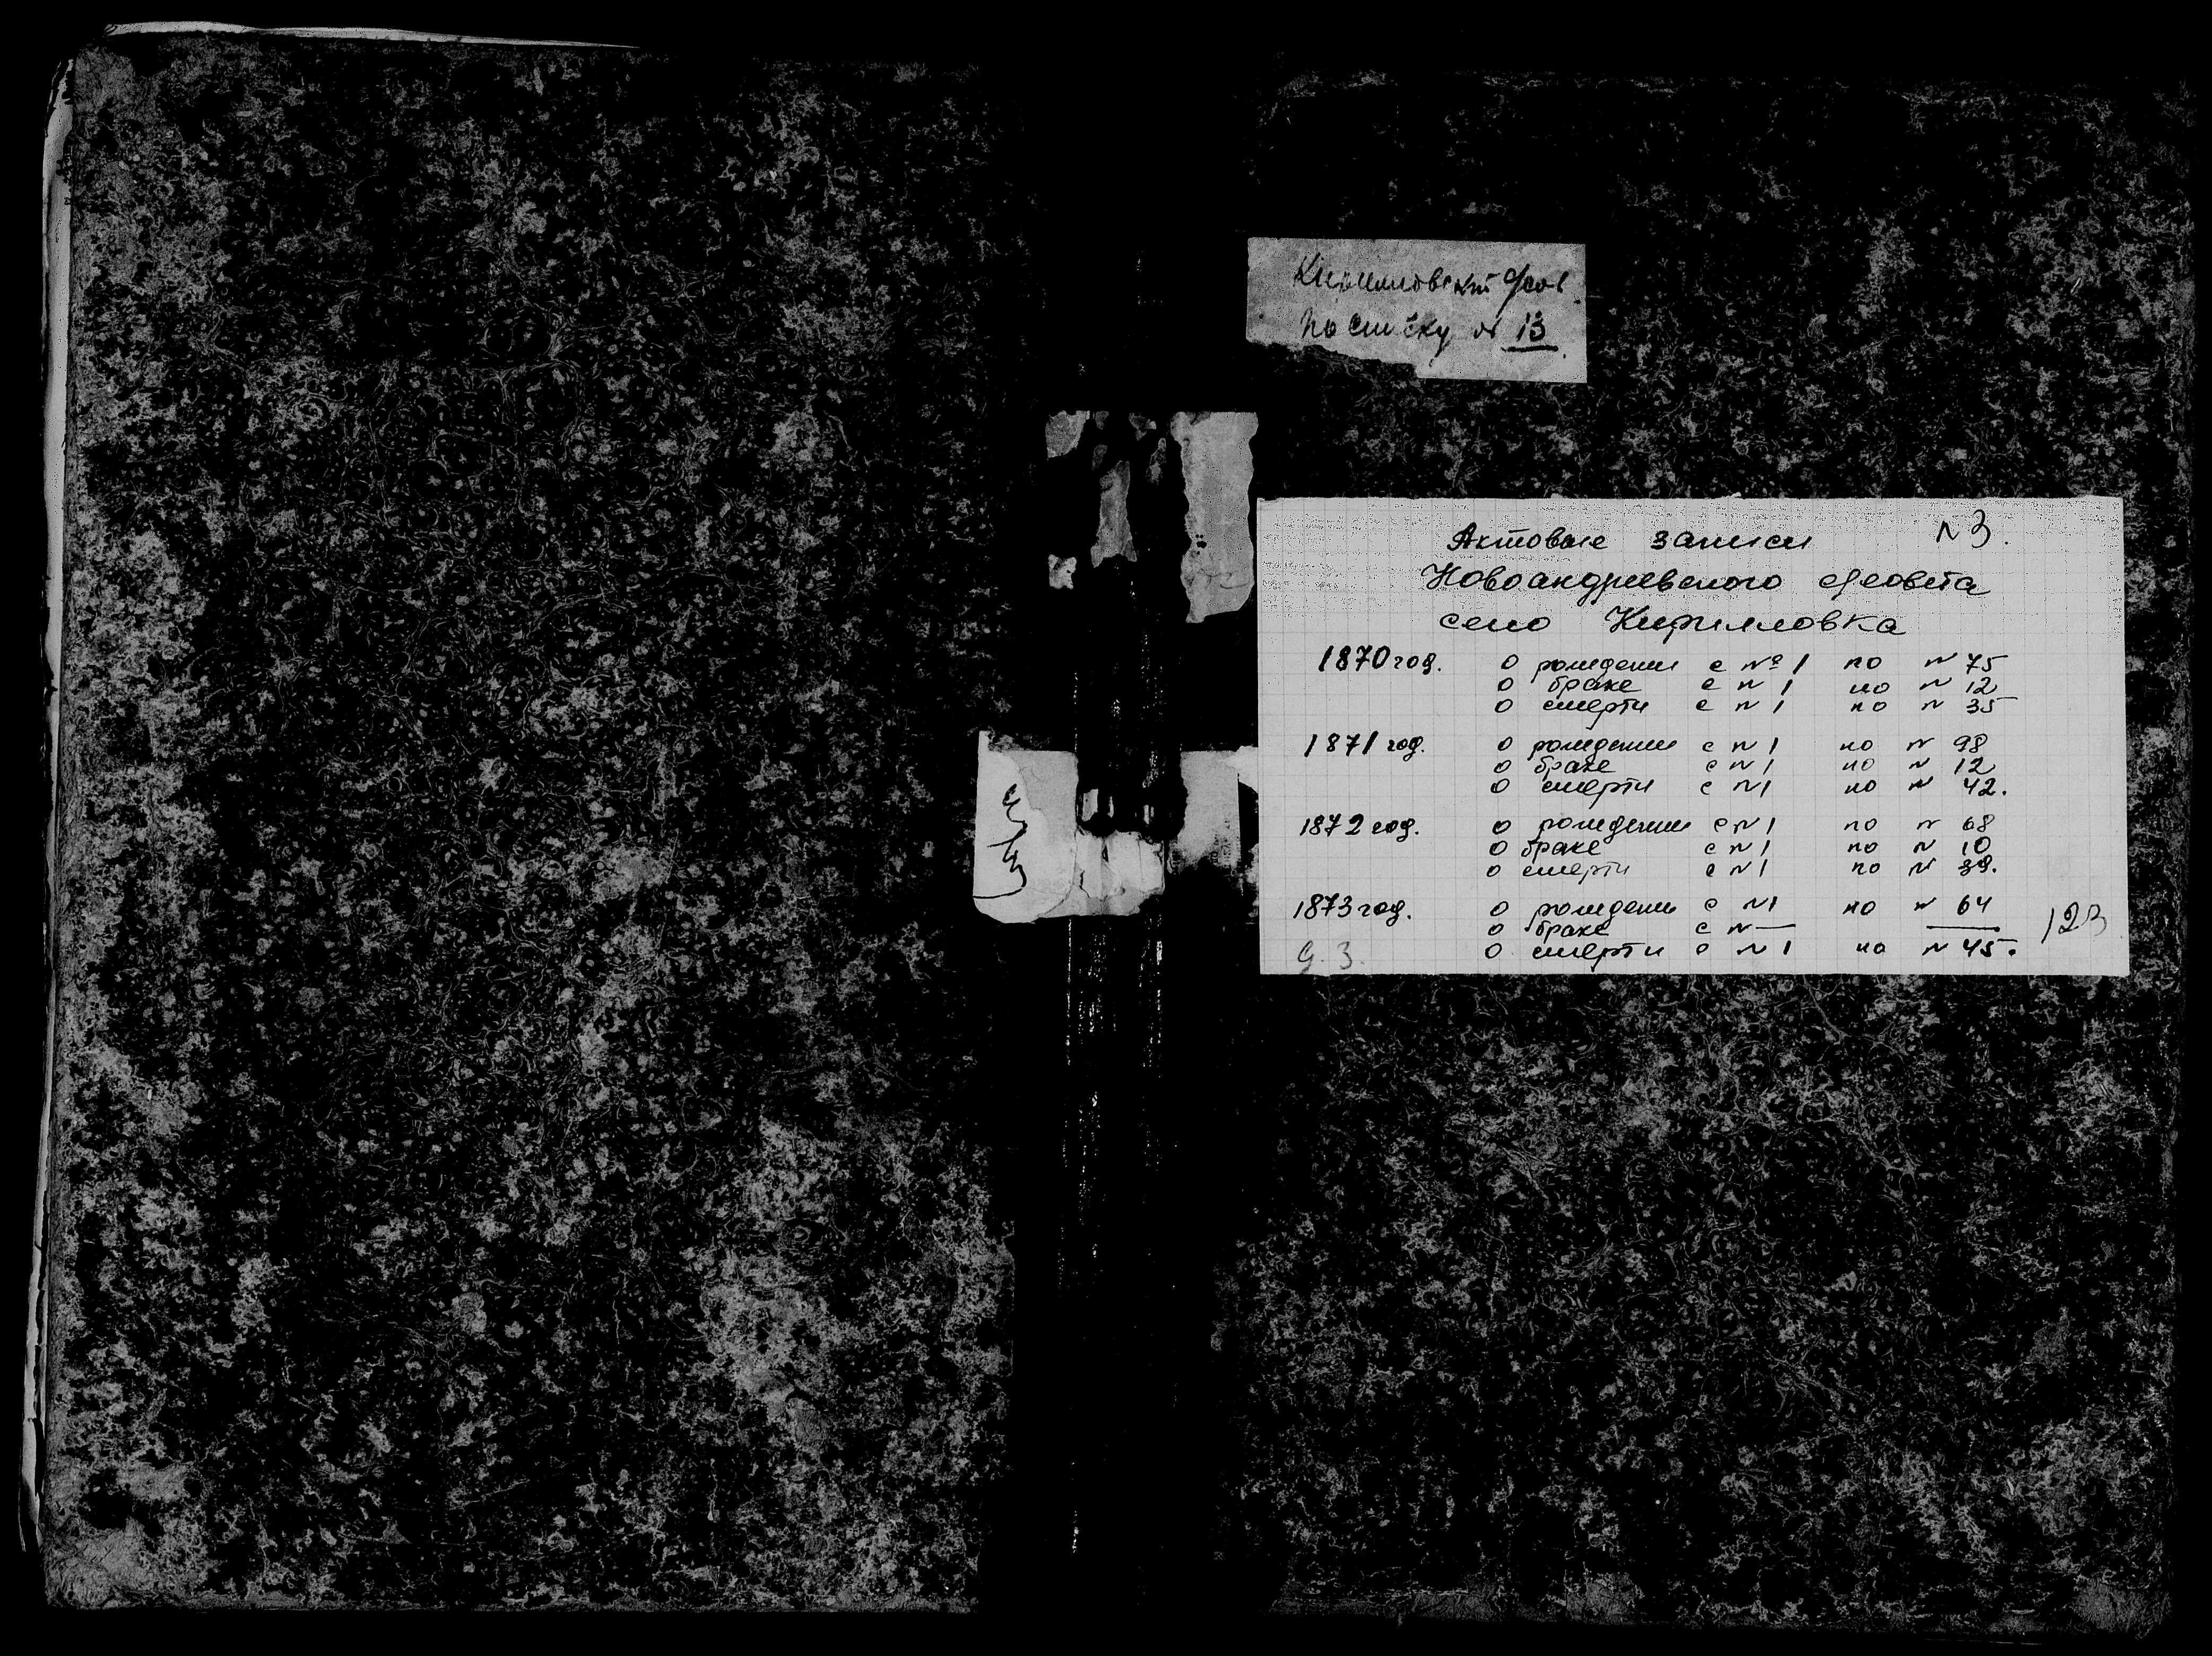 Кирилловский с/сов.
По списку № 13
Актовые записи №3.
Новоандреевского с/совета
село Кирилловка
1870 год. О рождении с № 1 по № 75
О браке с № 1 по № 12
О смерти с № 1 по № 35
1871 год. О рождении с № 1 по № 98
О браке с № 1 по № 12
О смерти с № 1 по № 42.
1872 год. О рождении с № 1 по № 68
О браке с № 1 по № 10
О смерти с № 1 по № 39.
1873 год. О рождении с № 1 по № 64
О браке с № — —
О смерти с № 1 по № 45.
123
д. 3.